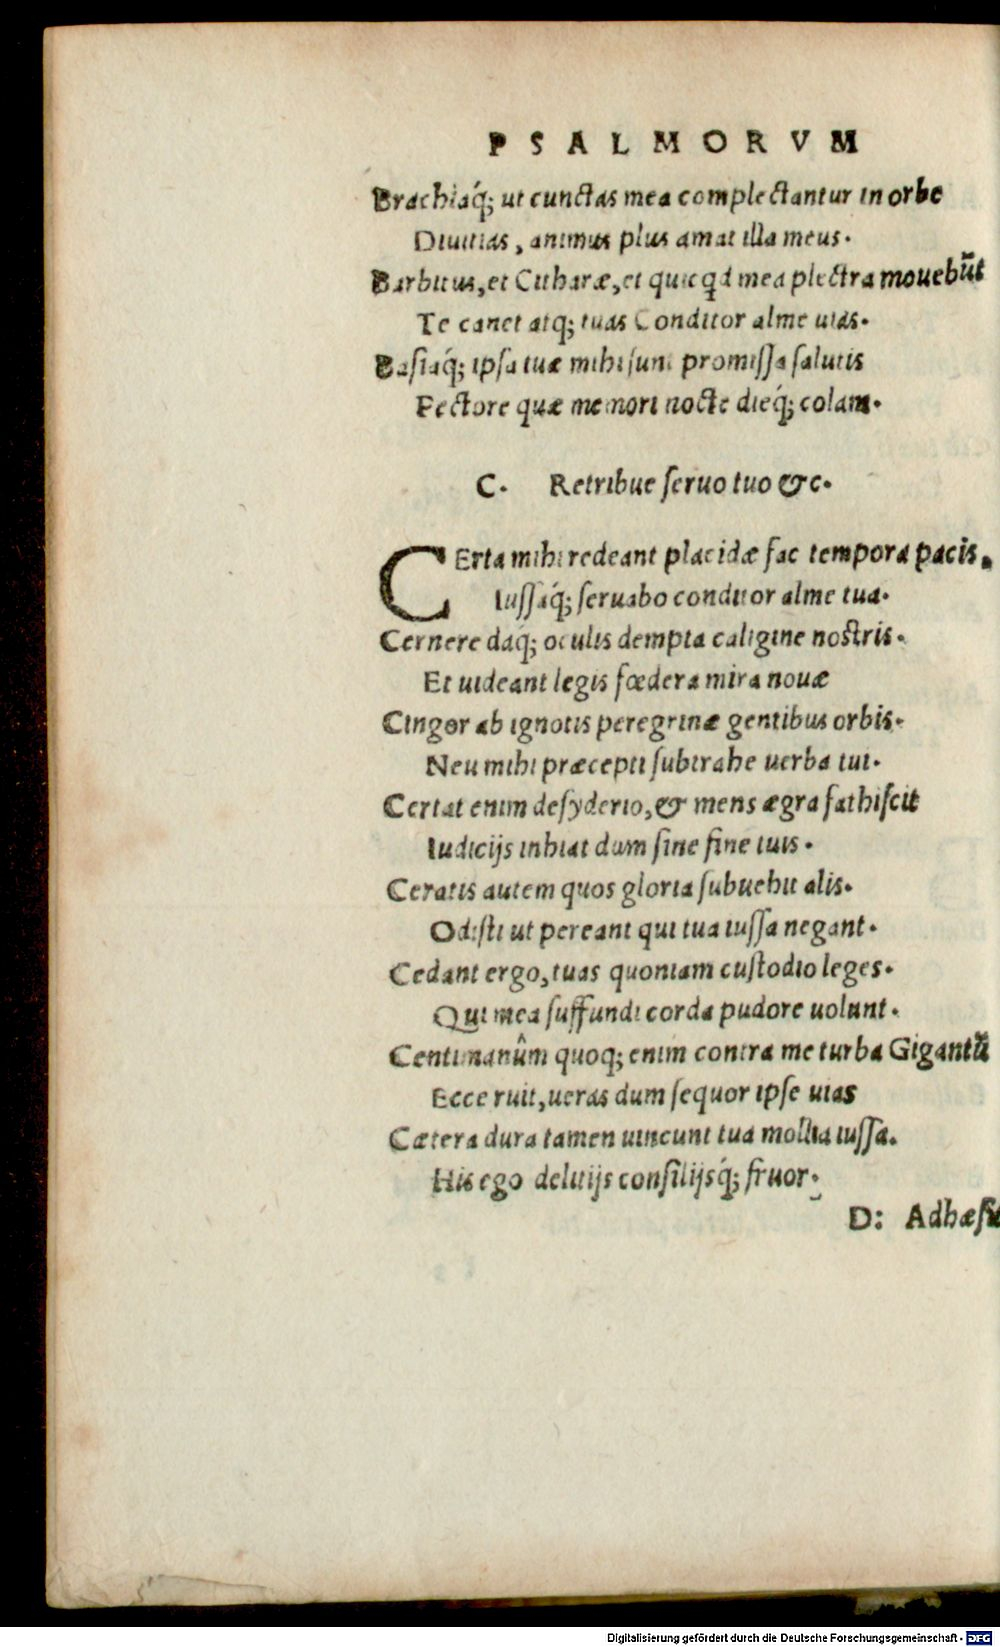 PSALMORVM
Brachiaq́; ut cunctas mea complectantur in orbe
Diuitias, animus plus amat illa meus.
Barbitus, et Citharæ, et quicqd mea plectra mouebũt
Te canet atq; tuas Conditor alme uias.
Basiaq́; ipsa tuæ mihi sunt promissa salutis
Pectore quæ memori nocte dieq́; colam.
C. Retribue seruo tuo &c.
CErta mihi redeant placidæ fac tempora pacis,
Iussaq́; seruabo conditor alme tua.
Cernere daq́; oculis dempta caligine nostris.
Et uideant legis fœdera mira nouæ
Cingor ab ignotis peregrinæ gentibus orbis.
Neu mihi præcepti subtrahe uerba tui.
Certat enim desyderio, & mens ægra fathiscit
Iudicijs inhiat dum sine fine tuis.
Ceratis autem quos gloria subuehit alis.
Odisti ut pereant qui tua iussa negant.
Cedant ergo, tuas quoniam custodio leges.
Qui mea suffundi corda pudore uolunt.
Centimanûm quoq; enim contra me turba Gigantũ
Ecce ruit, ueras dum sequor ipse uias
Cætera dura tamen uincunt tua mollia iussa.
His ego delitijs consilijsq́; fruor.
D: Adhæsi
Digitalisierung gefördert durch die Deutsche Forschungsgemeinschaft - DFG